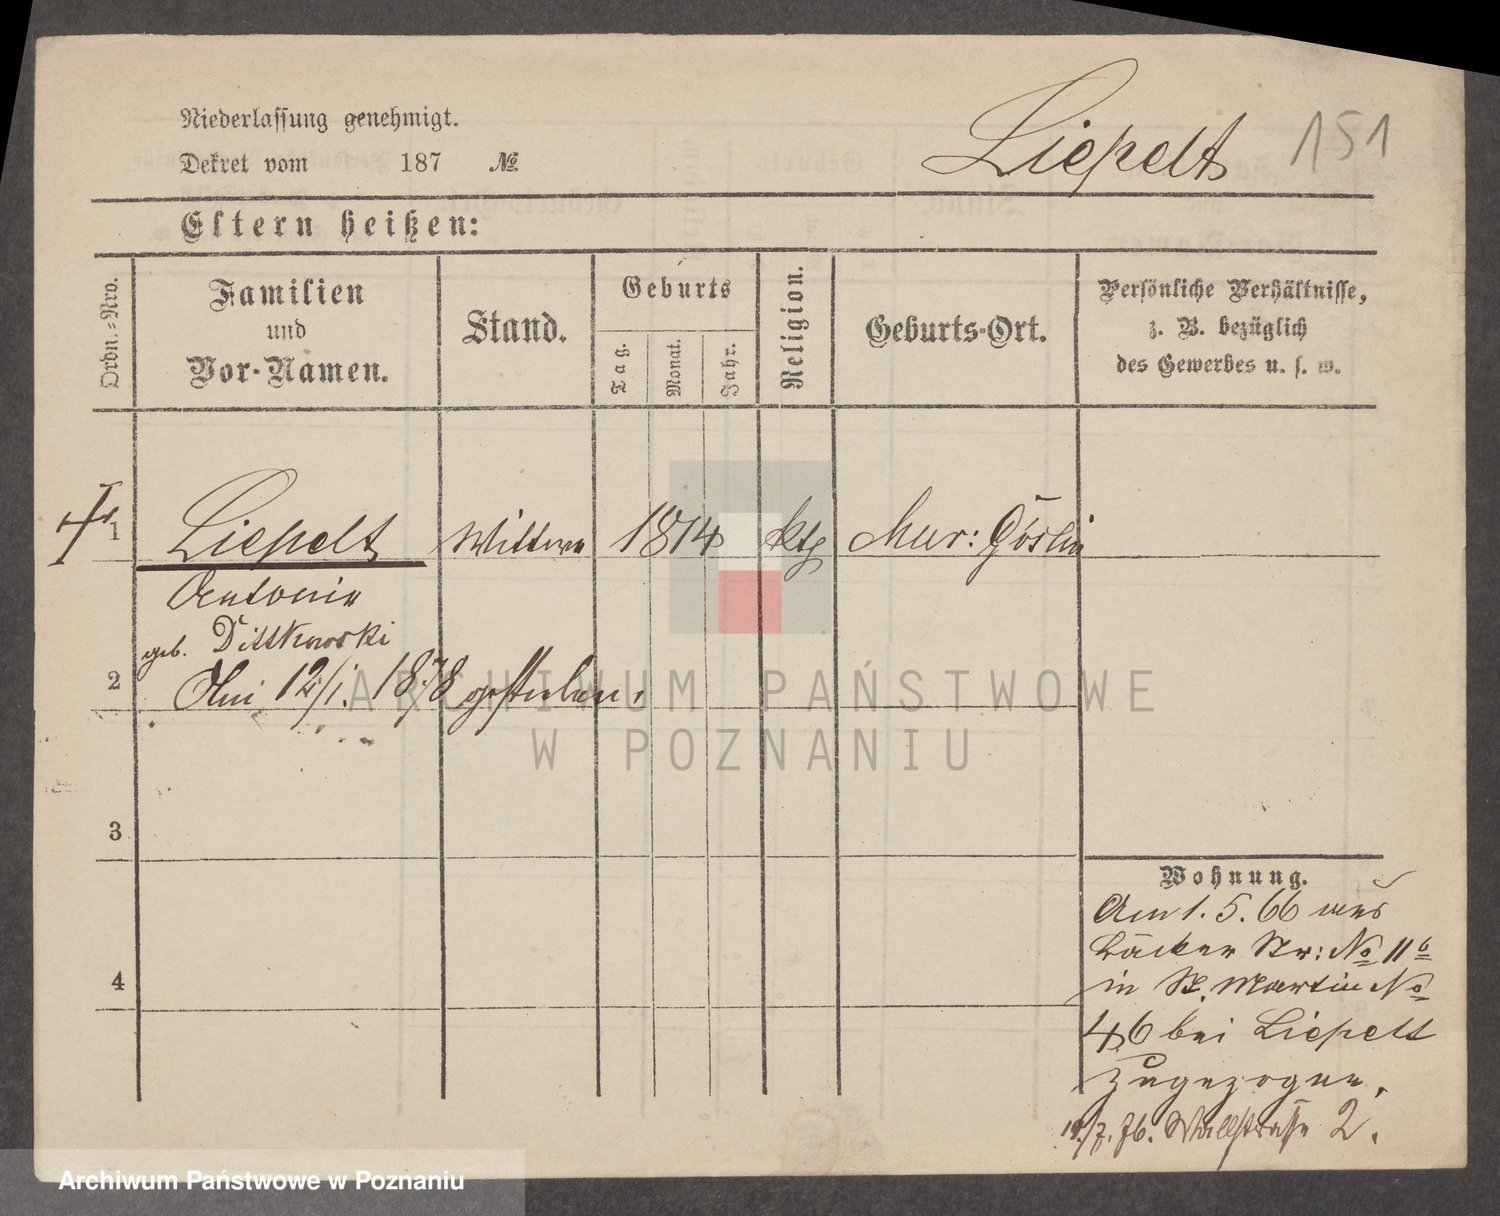 Niederlassung genehmigt.
Dekret vom 187 №
Liepelt 151
Eltern heißen:
Ordn.=Nro.
Familien
und
Vor-Namen.
Stand.
Geburts
Tag.
Monat.
Jahr.
Religion.
Geburts-Ort.
Persönliche Verhältnisse,
z. B. bezüglich
des Gewerbes u. s. w.
1 Liepelt Wittwe 1814 kth Mur: Goslin
Antonie
geb. Dittkowski
2 Am 12/1. 1878 gestorben.
ARCHIWUM PAŃSTWOWE
W POZNANIU
3
Wohnung.
Am 1. 5. 66 aus
Bäcker Str: No 11b
4
in St. Martin No
46 bei Liepelt
zugezogen.
19/7. 76. Wallstraße 2.
Archiwum Państwowe w Poznaniu